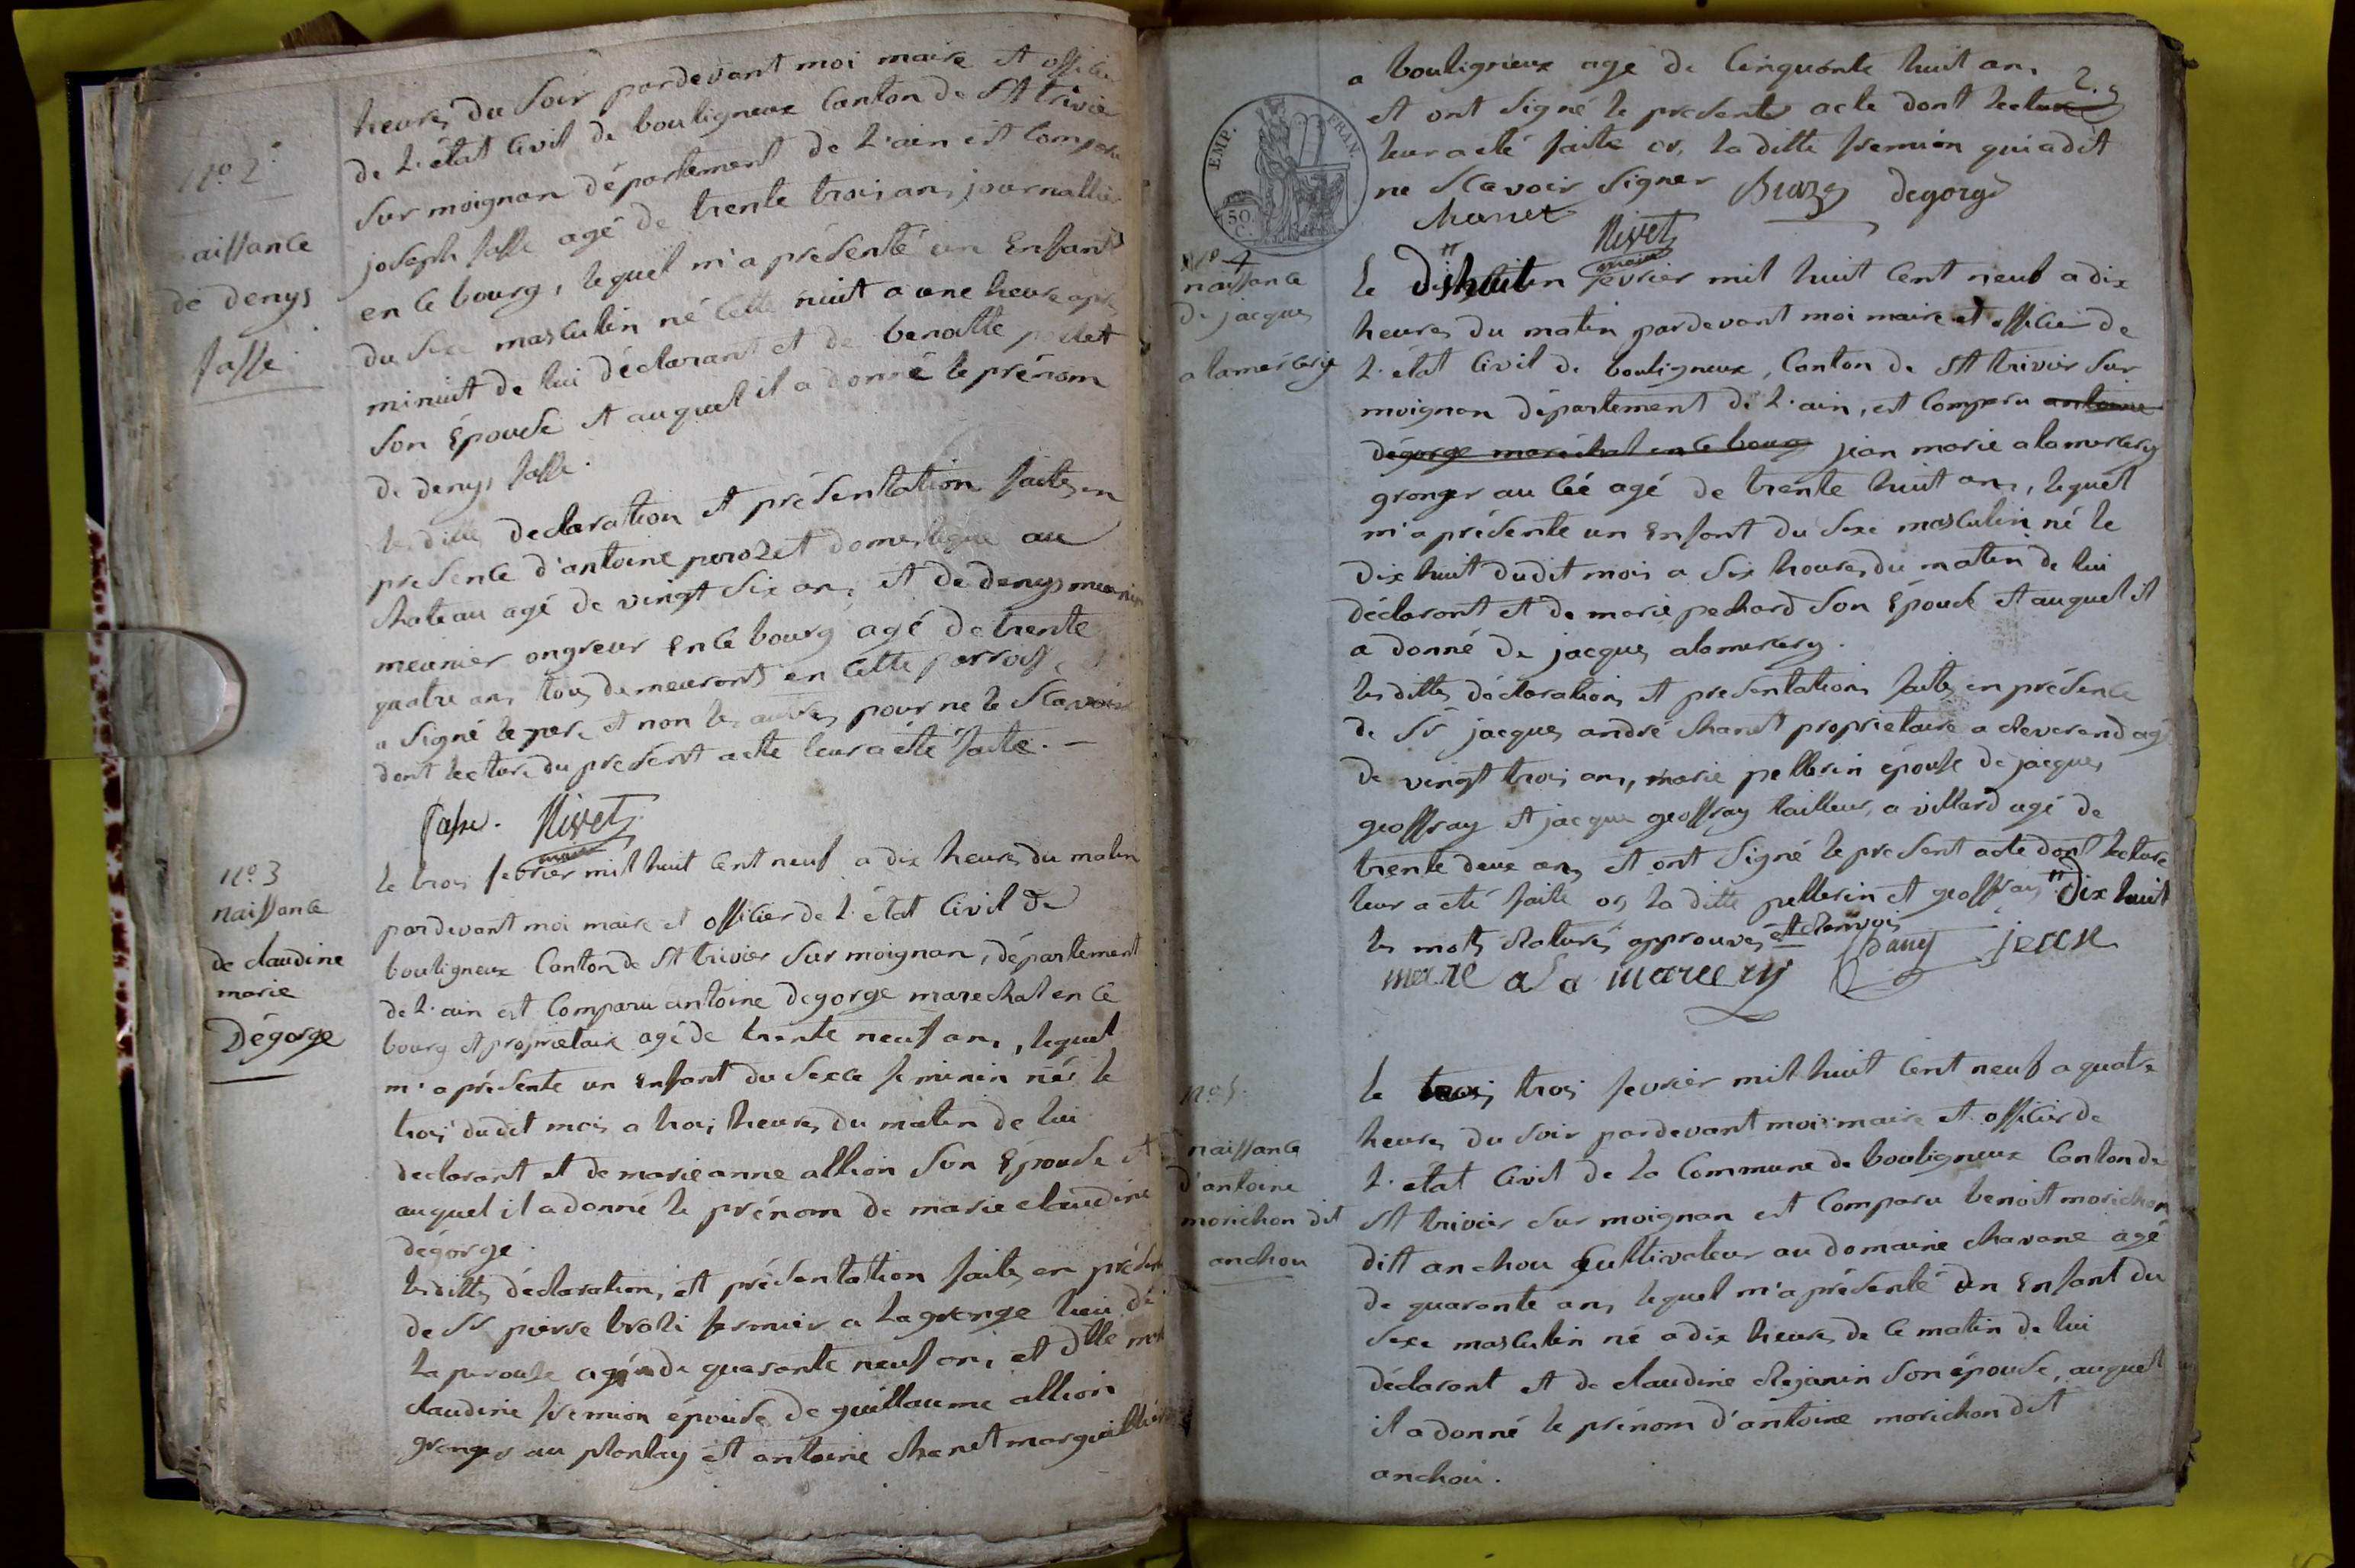 heures du soir pardevant moi maire et officier
de l'état civil de bouligneux canton de st trivier
sur moignan département de l'ain est comparu
joseph fasse agé de trente trois ans journallier
en ce bourg, lequel m'a présenté un enfant
du sexe masculin né cette nuit a une heure après
minuit de lui déclarant et de benoitte
son épouse et auquel il a donné le prénom
de denys fasse.
les dittes declaration et présentation faites en
presence d'antoine perozet domestique au
chateau agé de vingt six ans et de denys meunier
meunier ongreur en ce bourg agé de trente
quatre ans tous demeurants en cette parroisse, et
a signé le pere et non les autres pour ne le scavoir
dont lecture du present acte leur a été faite. —
fasse. Nivet
maire
N.o 2.
naissance
de denys
fasse
N.o 3
naissance
de claudine
marie
Dégorge
le trois fevrier mil huit cent neuf a dix heures du matin
pardevant moi maire et officier de l'état civil de
bouligneux canton de st trivier sur moignan, département
de l'ain est comparu antoine degorge marechal en ce
bourg et proprietaire agé de trente neuf ans, lequel
m'a présente un enfant du sexce feminin née le
trois dudit mois a trois heures du matin de lui
declarant et de marieanne allion son épouse et
auquel il a donné le prénom de marie claudine
dégorge.
les dittes déclaration, et présentation faites en présence
de sr pierre brazi fermier a la grange lieu de
la perouse agé de quarante neuf ans et dlle
claudine fremion épouse de guillaume allion
granger au plantay et antoine chanet marguillier
a bouligneux agé de cinquante huit ans
2.
et ont signé le presente acte dont lecture
leur a été faite or, la ditte fremion qui a dit
ne scavoir signer Brazy degorge
chanet Nivet
maire
EMP. FRAN.
50 C.
N.o 4
naissance
de jacques
alamercery
le dishuit fevrier mil huit cent neuf a dix
heures du matin pardevant moi maire et officier de
l'état civil de bouligneux, canton de st trivier sur
moignan département de l'ain, est comparu antoine
dégorge maréchal en ce bourg jean marie alamercery
granger au cié agé de trente huit ans, lequel
m'a présente un enfant du sexe masculin né le
dix huit dudit mois a six heures du matin de lui
déclarant et de marie pechard son épouse et auquel il
a donné de jacques alamercery.
les dittes déclaration et presentation faites en présence
de sr jacques andré chanet proprietaire a cleverend agé
de vingt trois ans, marie pellerin épouse de jacques
geoffray et jacque geoffray tailleur, a villard agé de
trente deux ans et ont signé le present acte dont lecture
leur a été faite or, la ditte pellerin et geoffray " dix huit
les mots raturés approuvés et renvoi
mare a la marcery jean
N.o 5.
naissance
d'antoine
morichon dit
anchou
le trois trois fevrier mil huit cent neuf a quatre
heures du soir pardevant moi maire et officier de
l'état civil de la commune de bouligneux canton de
st trivier sur moignan est comparu benoit morichon
dit anchou cultivateur au domaine chavane agé
de quarante ans lequel m'a présenté un enfant du
sexe masculin né a dix heures de ce matin de lui
déclarant et de claudine son épouse, auquel
il a donné le prénom d'antoine morichon dit
anchou.